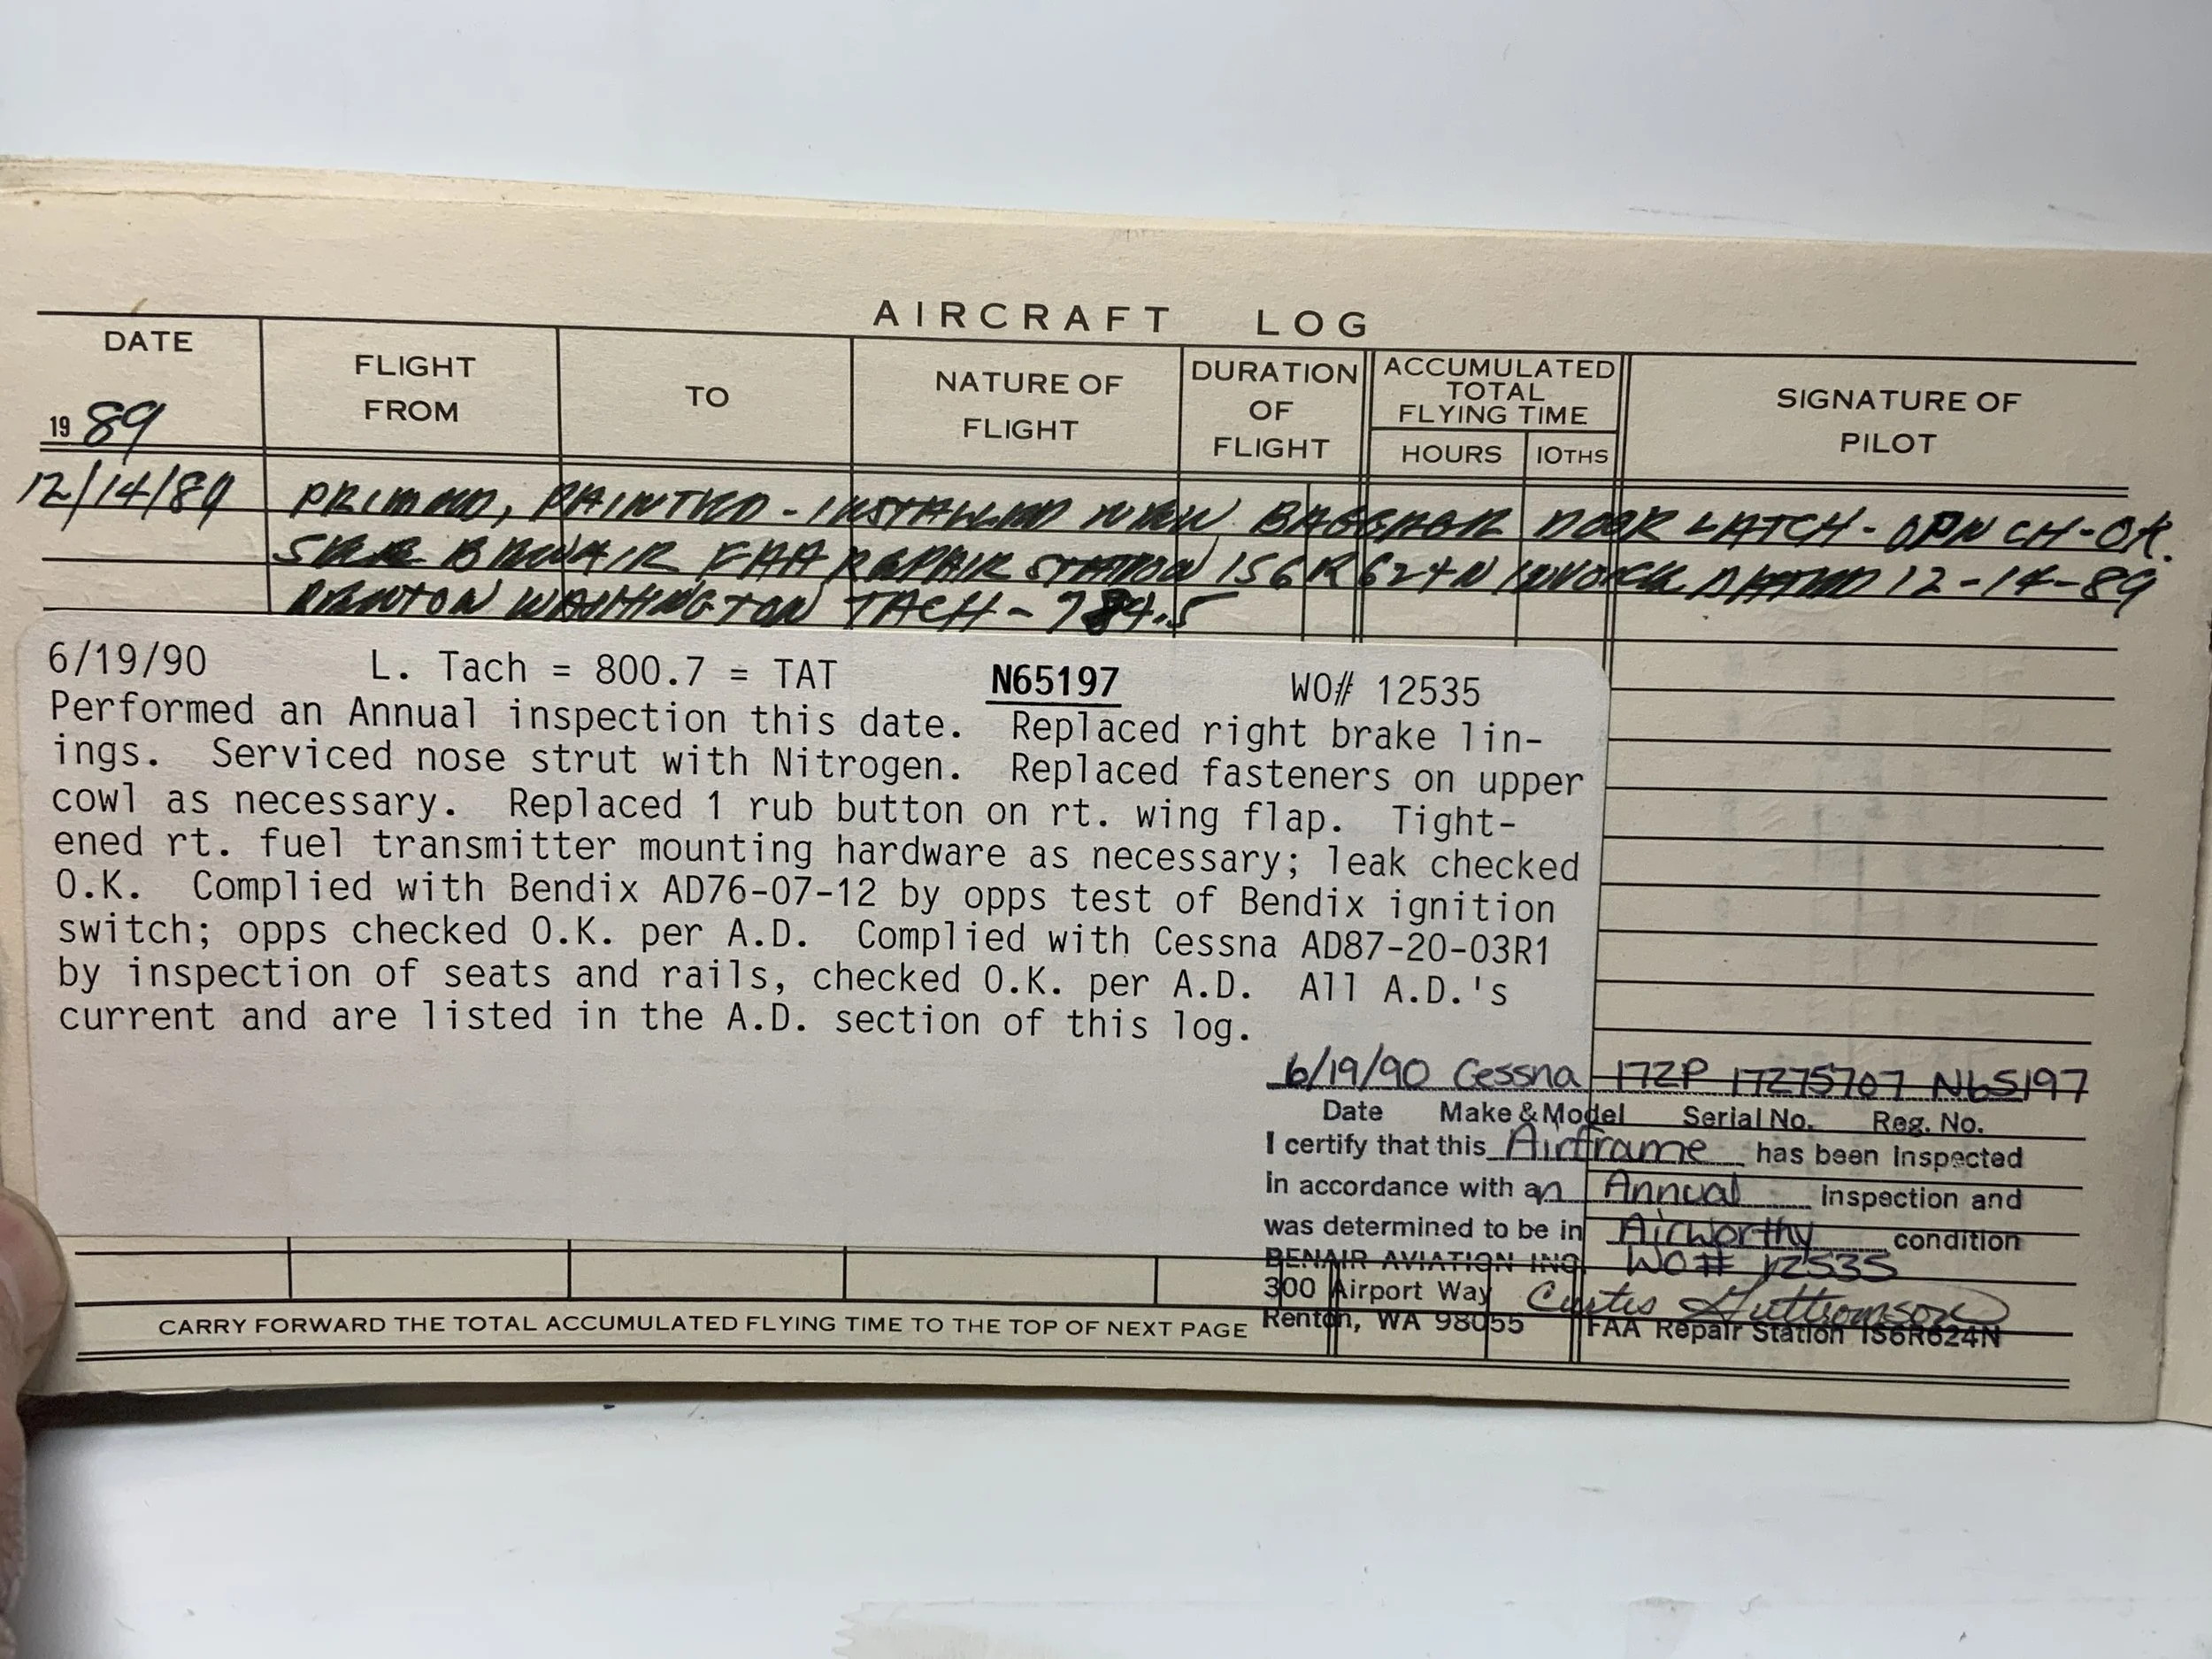 AIRCRAFT LOG
DATE
FLIGHT FROM
TO
NATURE OF FLIGHT
DURATION OF FLIGHT
ACCUMULATED TOTAL FLYING TIME
HOURS
10THS
SIGNATURE OF PILOT
19 89
12/14/89 PRIMED, PAINTED - INSTALLED NEW BAGGAGE DOOR LATCH - OPN CH-OK.
SEE BENAIR FAA REPAIR STATION IS6R624N INVOICE DATED 12-14-89
RENTON WASHINGTON TACH - 784.5
6/19/90 L. Tach = 800.7 = TAT N65197 WO# 12535
Performed an Annual inspection this date. Replaced right brake lin-
ings. Serviced nose strut with Nitrogen. Replaced fasteners on upper
cowl as necessary. Replaced 1 rub button on rt. wing flap. Tight-
ened rt. fuel transmitter mounting hardware as necessary; leak checked
O.K. Complied with Bendix AD76-07-12 by opps test of Bendix ignition
switch; opps checked O.K. per A.D. Complied with Cessna AD87-20-03R1
by inspection of seats and rails, checked O.K. per A.D. All A.D.'s
current and are listed in the A.D. section of this log.
6/19/90 Cessna 172P 17275707 N65197
Date Make & Model Serial No. Reg. No.
I certify that this Airframe has been inspected
in accordance with an Annual inspection and
was determined to be in Airworthy condition
BENAIR AVIATION INC. WO# 12535
300 Airport Way Curtis
Renton, WA 98055 FAA Repair Station IS6R624N
CARRY FORWARD THE TOTAL ACCUMULATED FLYING TIME TO THE TOP OF NEXT PAGE